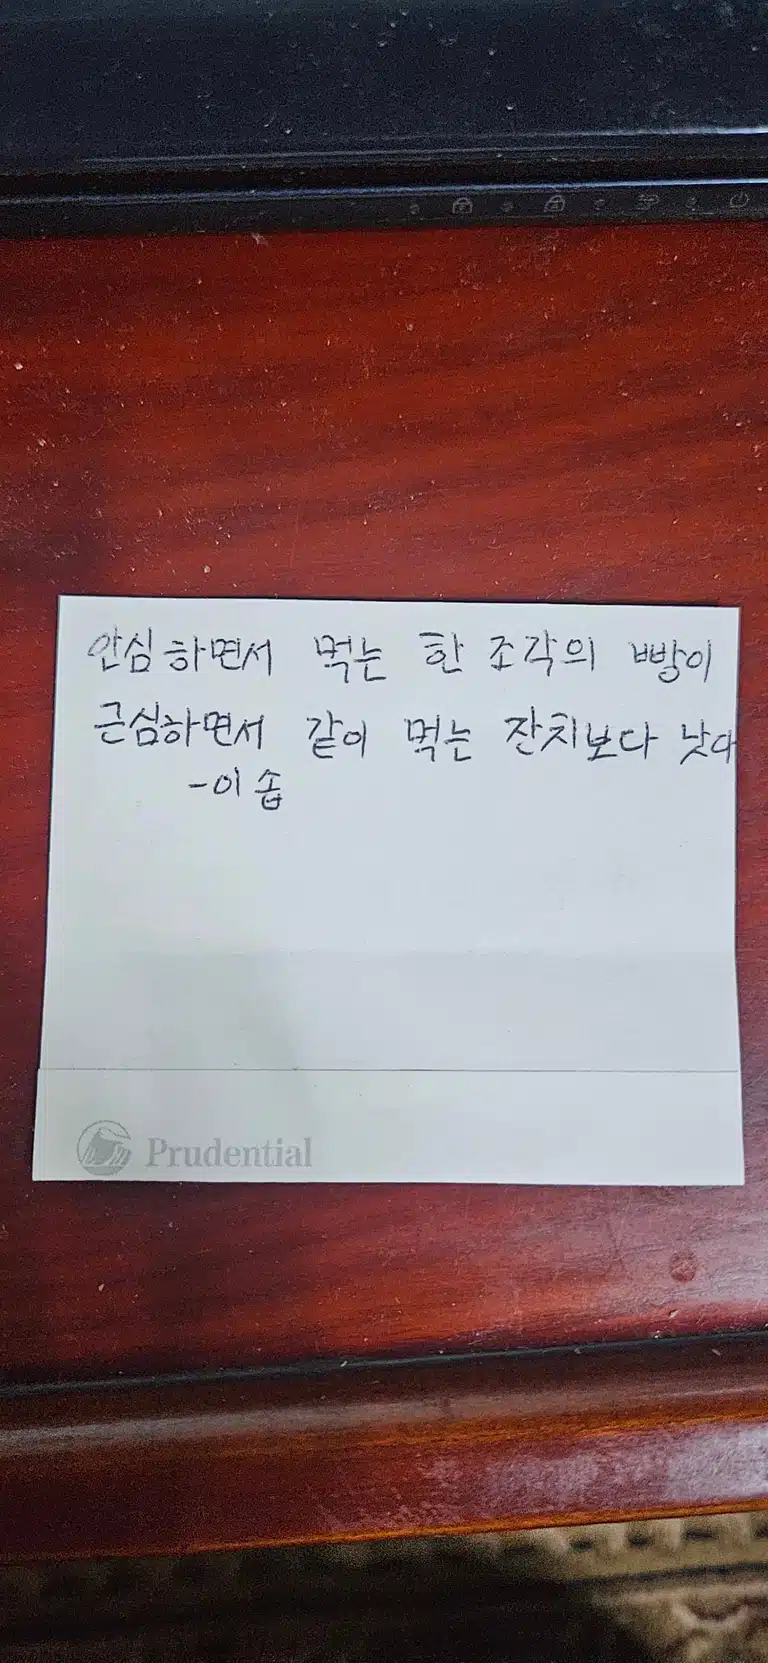 안심하면서 먹는 한 조각의 빵이
근심하면서 같이 먹는 잔치보다 낫다
-이솝
Prudential